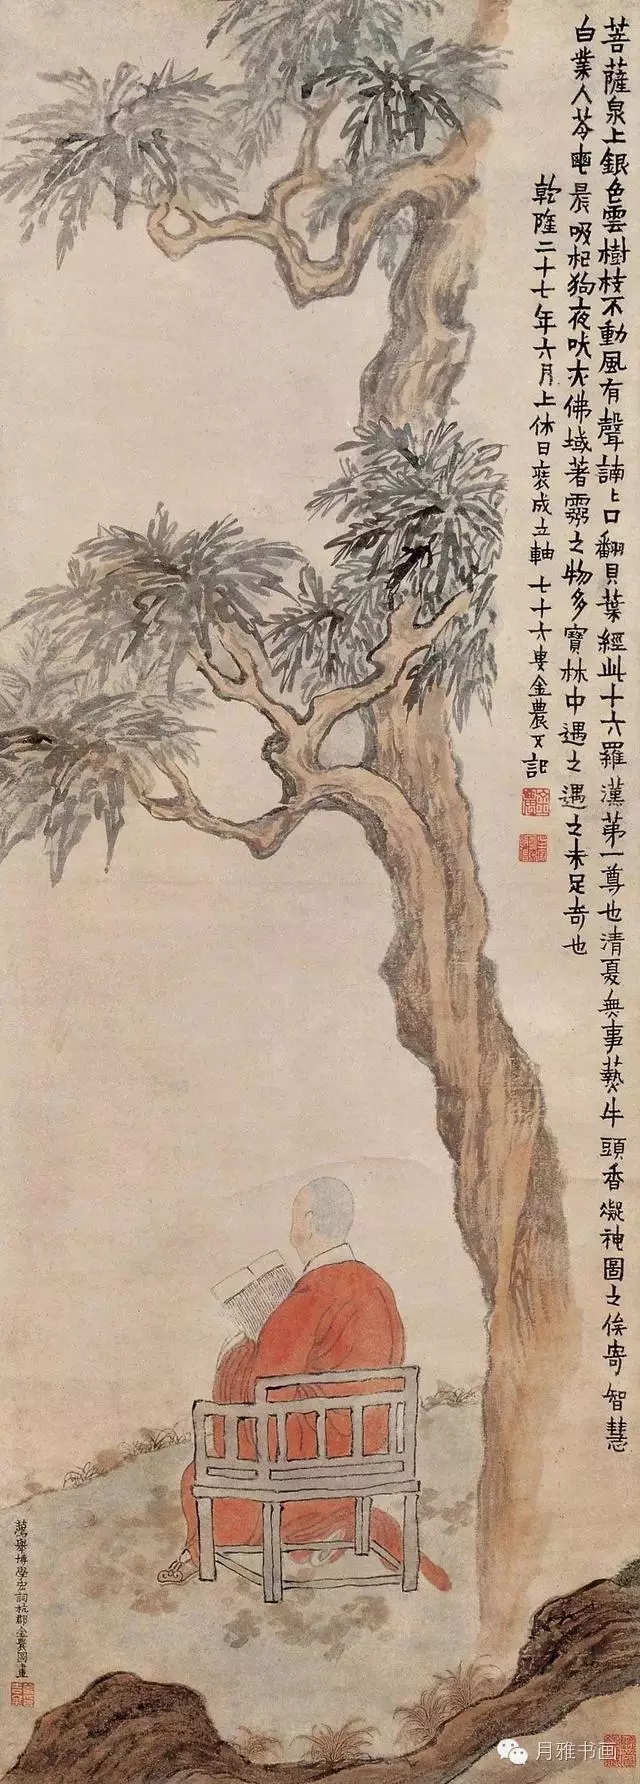 菩薩泉上銀色雲樹枝不動風有聲諵々口翻貝葉經此十六羅漢第一尊也清夏無事爇牛頭香凝神圖之俟寄智慧
白業人苓龜晨吸杞狗夜吠亦佛域著靈之物多寶林中遇之遇之未足奇也
乾隆二十七年六月上休日裝成立軸七十六叟金農又記
薦舉博學宏詞杭郡金農圖畫
月雅书画